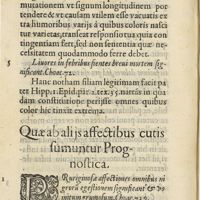 mutationem vt signum longitudinem por
tendere & vt causam vtilem esse vacuatis ex
tra humoribus varijs à quibus coloris nasci
tur varietas, transeat responsio tua quia con
tingentium fert, sed non sententia quæ ne-
cessitatem quodammodo ferre debet.
5 Liuores in febribus fientes breui mortem sig
nificant. Choac.
Hanc notham filiam legitimam facit pa
ter Hipp.1. Epid. pri.2. tex.35. mittis in qua
dam constitutione periisse omnes quibus
color hic timui extrema.
Quæ ab alijs affectibus cutis
sumuntur Prog-
nostica.
1
Ruriginosæ affectiones omnibus ni
grorū egestionem significant & vo
mitum grumosum. Choac.